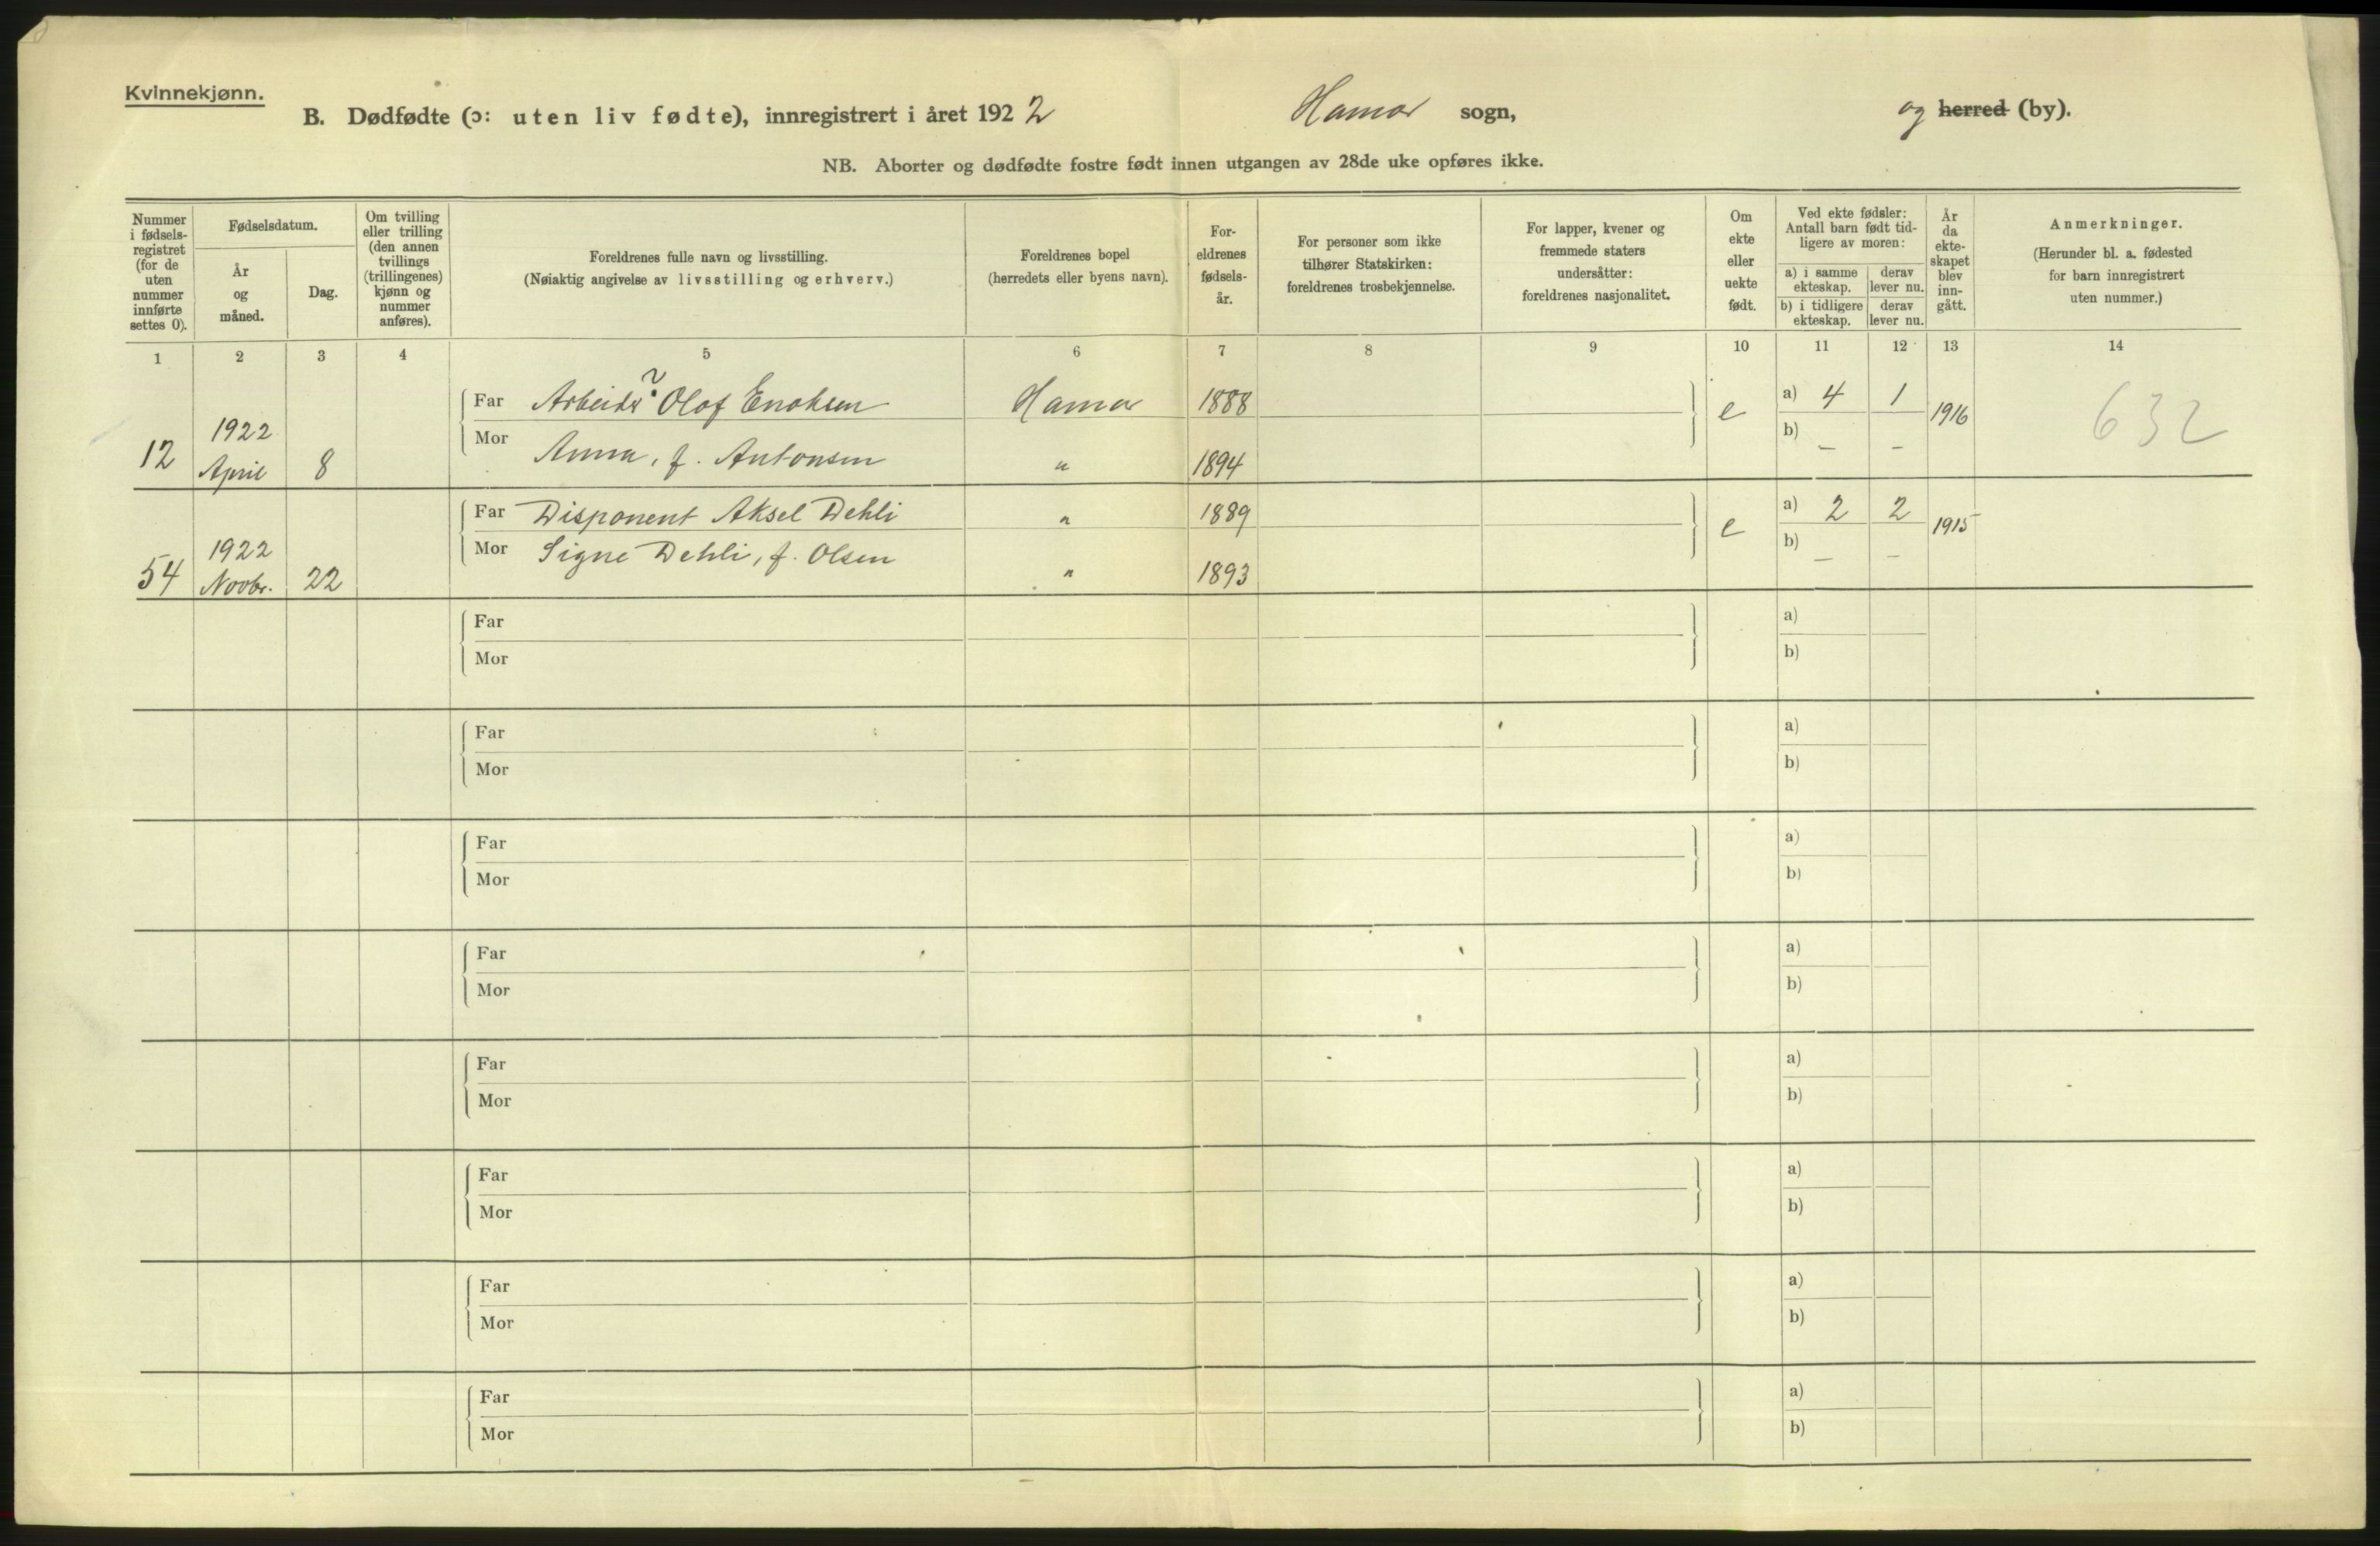 Kvinnekjønn.
B. Dødfødte (ɔ: uten liv fødte), innregistrert i året 1922 Hamar sogn, og herred (by).
NB. Aborter og dødfødte fostre født innen utgangen av 28de uke opføres ikke.
Nummer i fødsels-registret (for de uten nummer innførte settes 0).
Fødselsdatum.
År og måned.
Dag.
Om tvilling eller trilling (den annen tvillings (trillingenes) kjønn og nummer anføres).
Foreldrenes fulle navn og livsstilling.
(Nøiaktig angivelse av livsstilling og erhverv.)
Foreldrenes bopel
(herredets eller byens navn).
For-eldrenes fødsels-år.
For personer som ikke tilhører Statskirken: foreldrenes trosbekjennelse.
For lapper, kvener og fremmede staters undersåtter: foreldrenes nasjonalitet.
Om ekte eller uekte født.
Ved ekte fødsler: Antall barn født tid-ligere av moren:
a) i samme ekteskap.
derav lever nu.
b) i tidligere ekteskap.
derav lever nu.
År da ekte-skapet blev inn-gått.
Anmerkninger.
(Herunder bl. a. fødested for barn innregistrert uten nummer.)
1 2 3 4 5 6 7 8 9 10 11 12 13 14
?
Far Arbeider Olaf Enoksen Hamar 1888 e a) 4 1 1916 632
12 1922 April 8 Mor Anna, f. Antonsen " 1894 b) – –
Far Disponent Aksel Dehli " 1889 e a) 2 2 1915
54 1922 Novbr. 22 Mor Signe Dehli, f. Olsen " 1893 b) – –
Far a)
Mor b)
Far a)
Mor b)
Far a)
Mor b)
Far a)
Mor b)
Far a)
Mor b)
Far a)
Mor b)
Far a)
Mor b)
Far a)
Mor b)